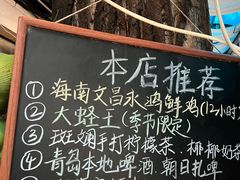 本店推荐
① 海南文昌永鸡鲜鸡(12小时)
② 大蛏王(季节限定)
③ 斑斓手打柠檬茶、椰椰奶茶
④ 青岛本地啤酒、朝日扎啤